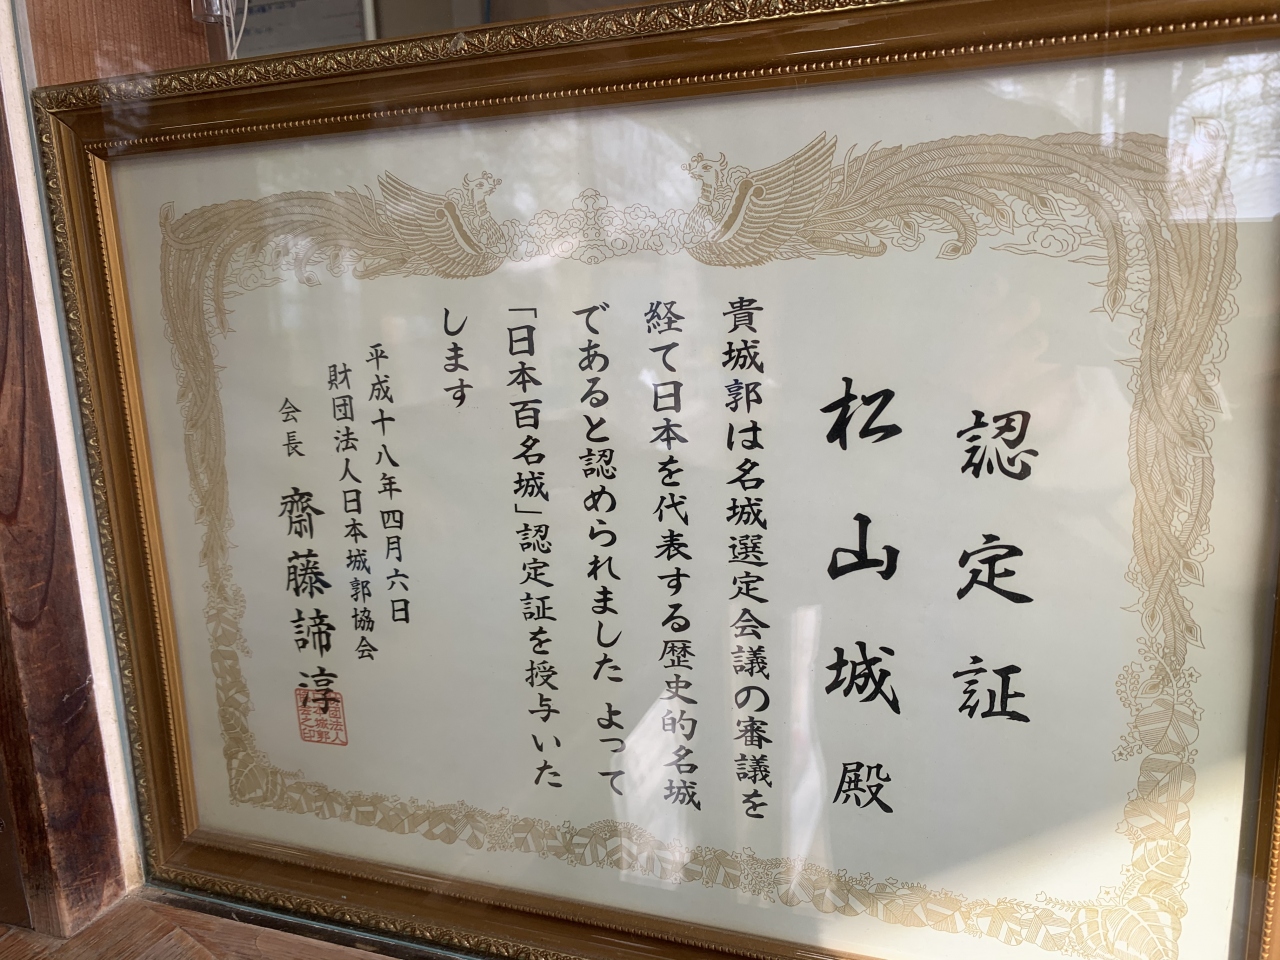 認定証
松山城殿
貴城郭は名城選定会議の審議を
経て日本を代表する歴史的名城
であると認められました よって
「日本百名城」認定証を授与いた
します
平成十八年四月六日
財団法人日本城郭協会
会長 齋藤諦淳